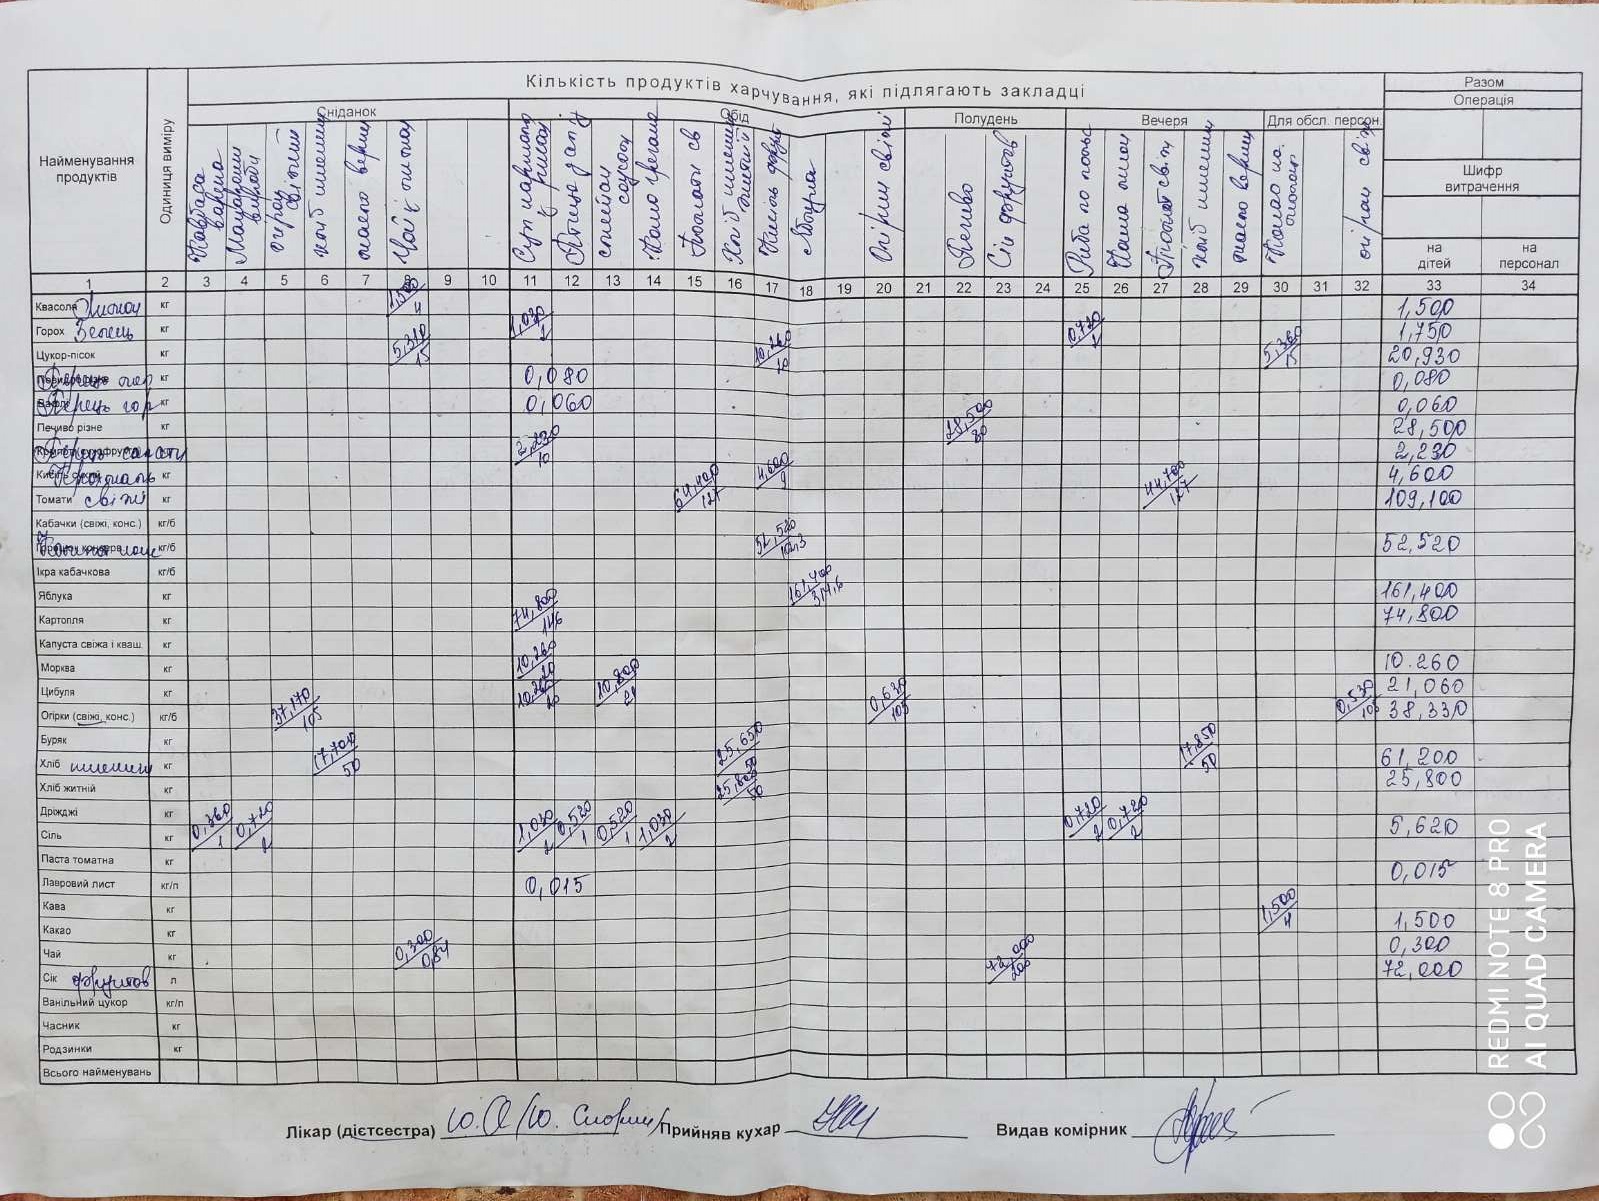 Кількість продуктів харчування, які підлягають закладці
Разом
Операція
Найменування продуктів
Одиниця виміру
Сніданок
Обід
Полудень
Вечеря
Для обсл. персон.
Шифр витрачення
на дітей
на персонал
Ковбаса варена
Макаронні вироби
огірок свіжий
хліб пшенич
масло верш
Чай з лимоном
Птиця
соус
Томати св
Хліб пшенич житній
Яблука
Огірки свіжі
Печиво
Сік фруктов
Риба по польс
Томат св.
хліб пшенич
масло верш
огірки св.
1 2 3 4 5 6 7 8 9 10 11 12 13 14 15 16 17 18 19 20 21 22 23 24 25 26 27 28 29 30 31 32 33 34
Квасоля Лимон кг 1,500/4 1,500
Горох Зелень кг 1,030/2 0,720/1 1,750
Цукор-пісок кг 5,310/15 10,260/20 5,360/15 20,930
кг 0,080 0,080
Перець гор кг 0,060 0,060
Печиво різне кг 28,500/80 28,500
кг 2,230/10 2,230
Крохмаль кг 4,600/9 4,600
Томати свіжі кг 64,400/127 44,700/127 109,100
Кабачки (свіжі, конс.) кг/б
кг/б 52,520/102,3 52,520
Ікра кабачкова кг/б
Яблука кг 161,400/314,6 161,400
Картопля кг 74,800/146 74,800
Капуста свіжа і кваш. кг
Морква кг 10,260/20 10.260
Цибуля кг 10,260/20 10,800/21 21,060
Огірки (свіжі, конс.) кг/б 37,170/105 0,630/105 0,530/105 38,330
Буряк кг
Хліб пшенич кг 17,700/50 25,650/50 17,850/50 61,200
Хліб житній кг 25,800/50 25,800
Дріжджі кг
Сіль кг 0,360/1 0,720/2 1,030/2 0,520/1 0,520/1 1,030/2 0,720/2 0,720/2 5,620
Паста томатна кг
Лавровий лист кг/п 0,015 0,015
Кава кг
Какао кг 1,500/4 1,500
Чай кг 0,300/0,84 0,300
Сік фруктов л 72,000/200 72,000
Ванільний цукор кг/п
Часник кг
Родзинки кг
Всього найменувань
Лікар (дієтсестра) Прийняв кухар Видав комірник
REDMI NOTE 8 PRO
AI QUAD CAMERA